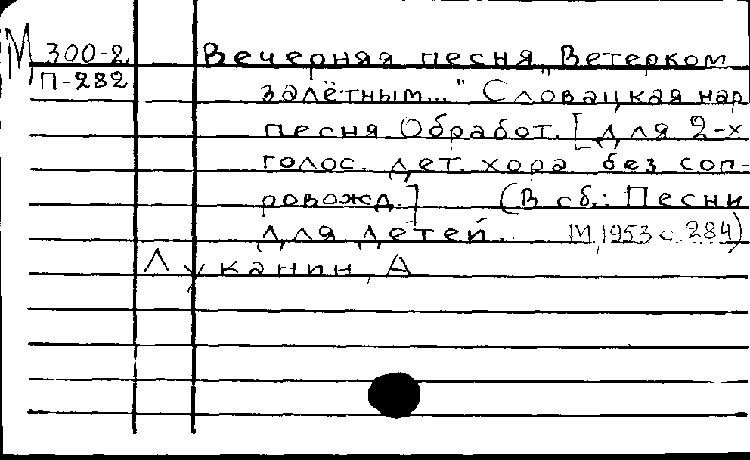 М 300-2 Вечерняя песня „Ветерком
П-282 залётным..." Словацкая нар
песня. Обработ. [для 2-х
голос. дет. хора без соп-
ровожд.] (В сб.: Песни
для детей. М, 1953 с. 284)
Луканин, А